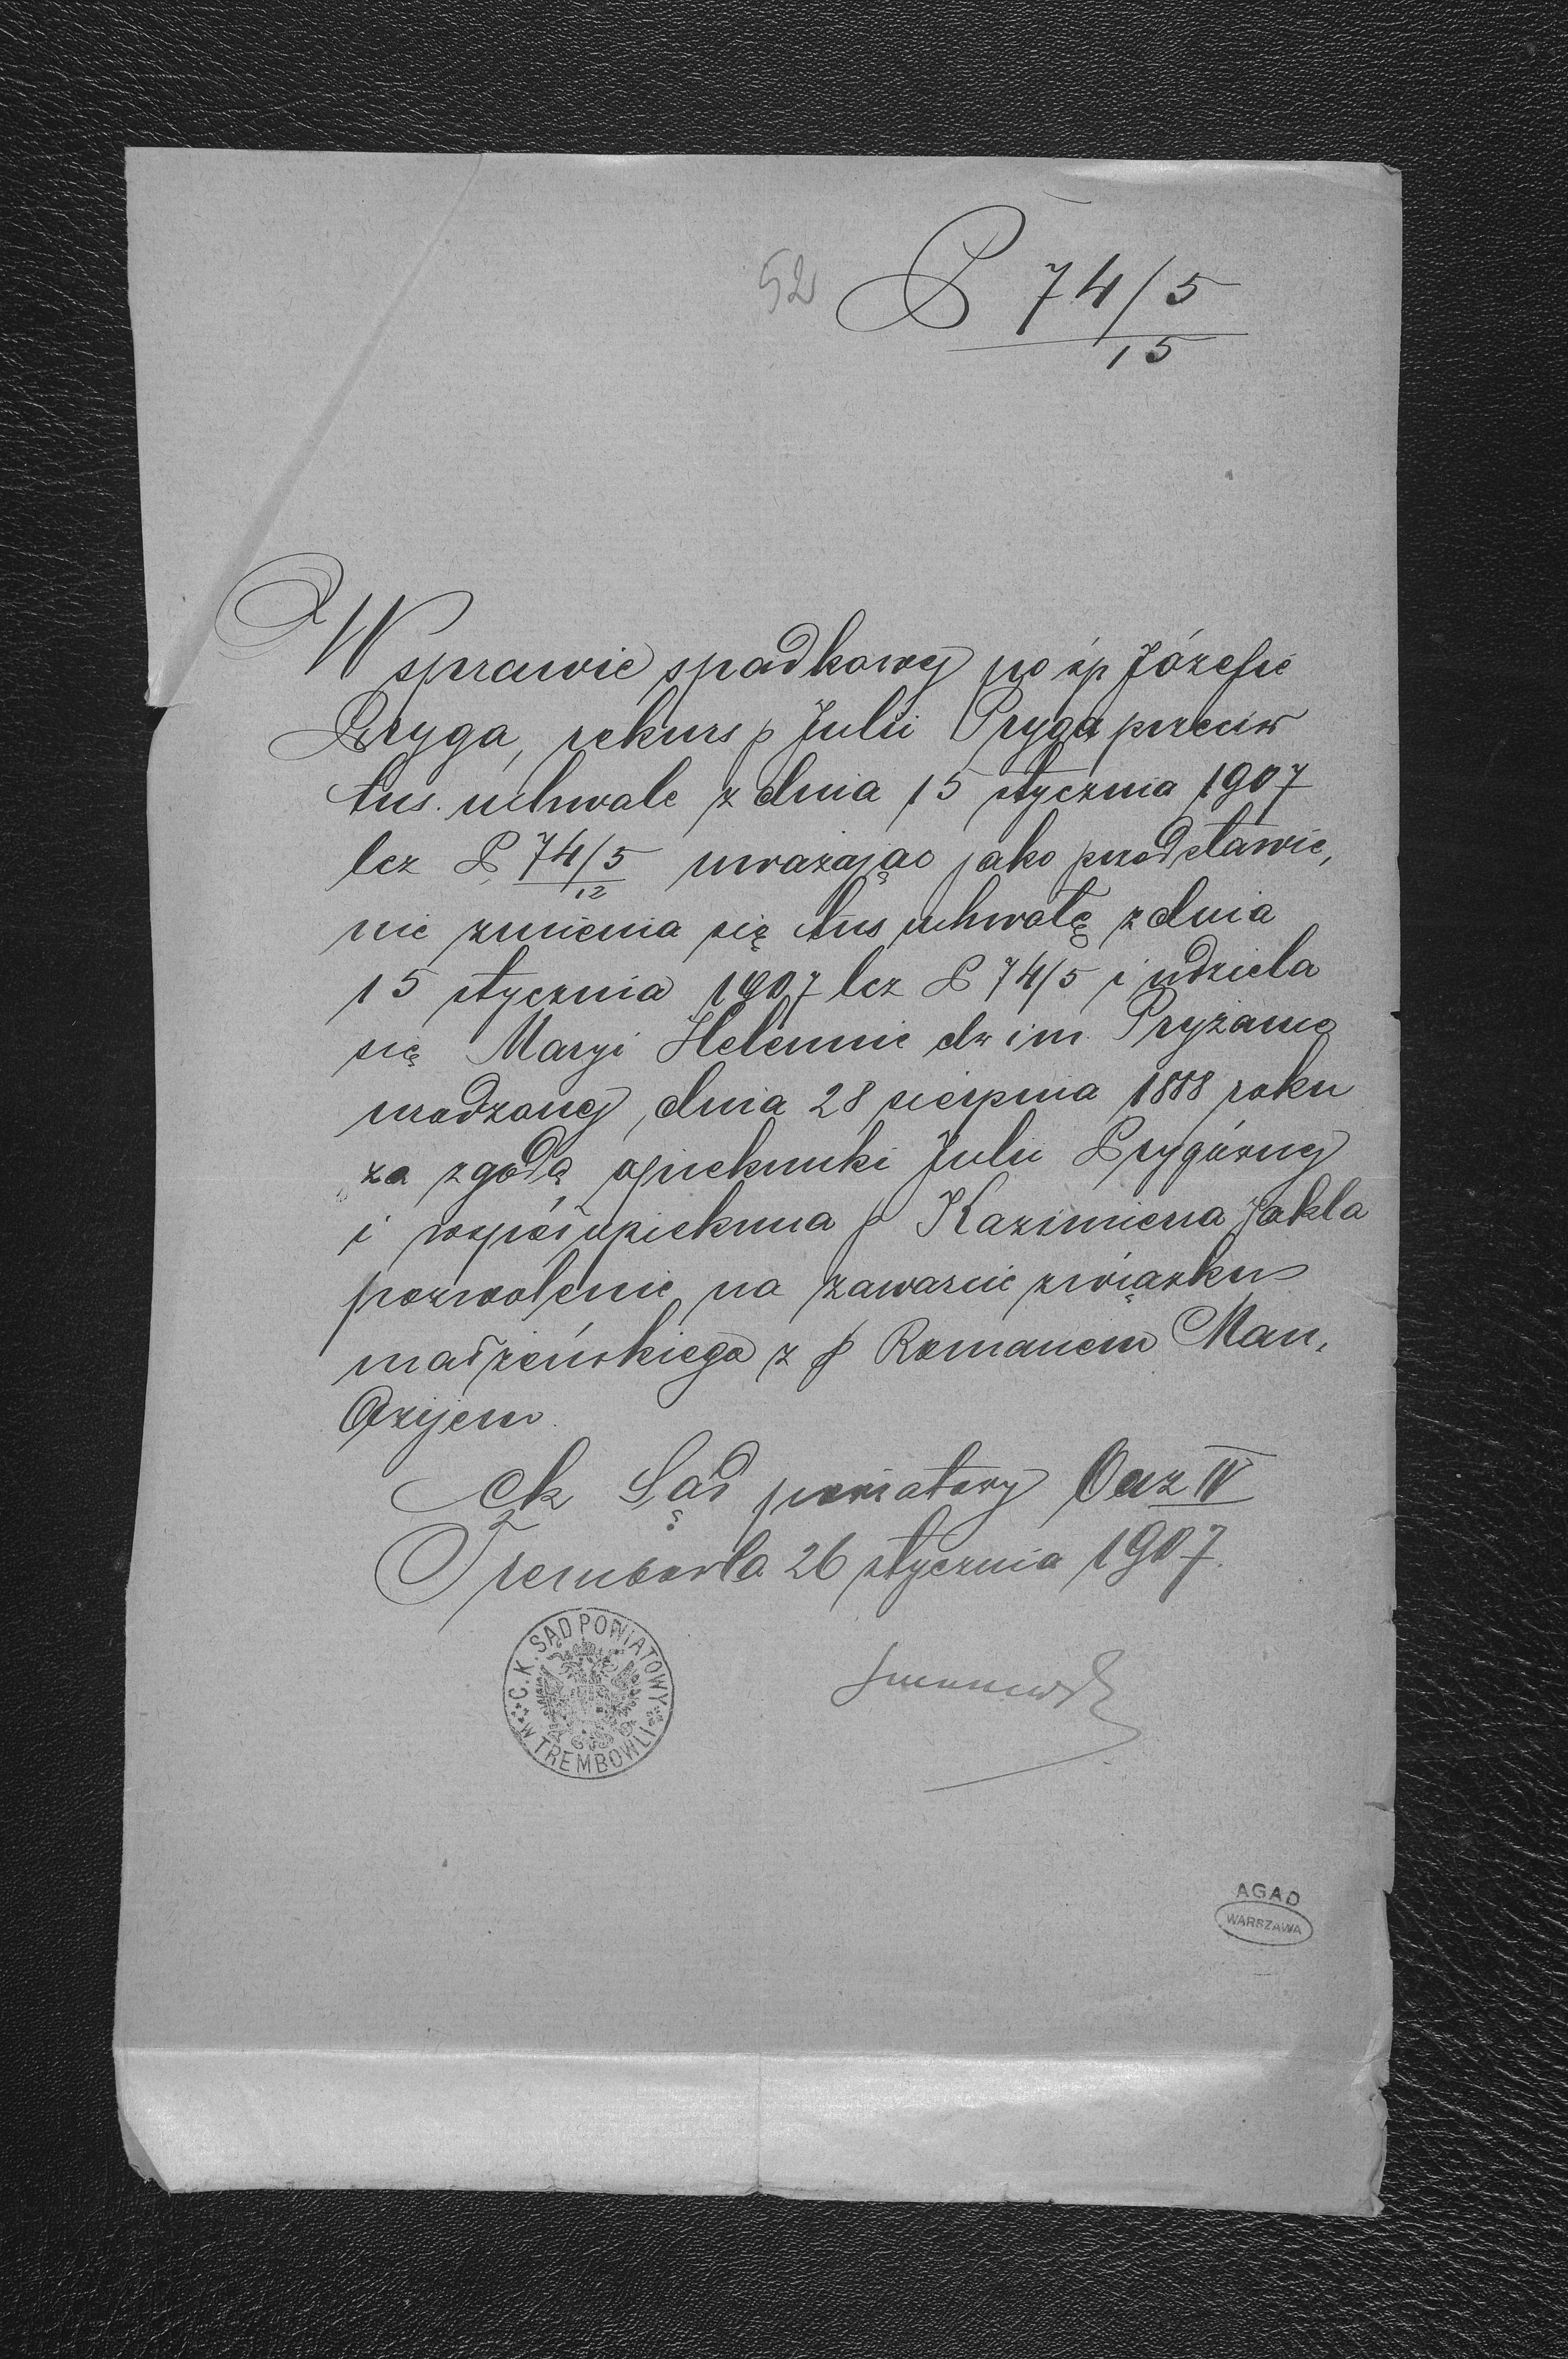 52
P 74/5
15
W sprawie spadkowej po śp Józefie
Pryga, rekurs p Julii Pryga przeciw
tus. uchwale z dnia 15 stycznia 1907
lcz P 74/5 uważając jako przedstawie,
12
nie zmienia się tus uchwałę z dnia
15 stycznia 1907 lcz P 74/5 i udziela
się Maryi Helennie dw im. Pryżanie
urodzonej dnia 28 sierpnia 1888 roku
za zgodą opiekunki Julii Prygównej
i współopiekuna p Kazimierza Jakla
pozwolenie na zawarcie związku
małżeńskiego z p Romanem Man,
dzijem.
Ck Sąd powiatowy Odz IV
Trembowla 26 stycznia 1907.
C. K. SĄD POWIATOWY
W TREMBOWLI
AGAD
WARSZAWA